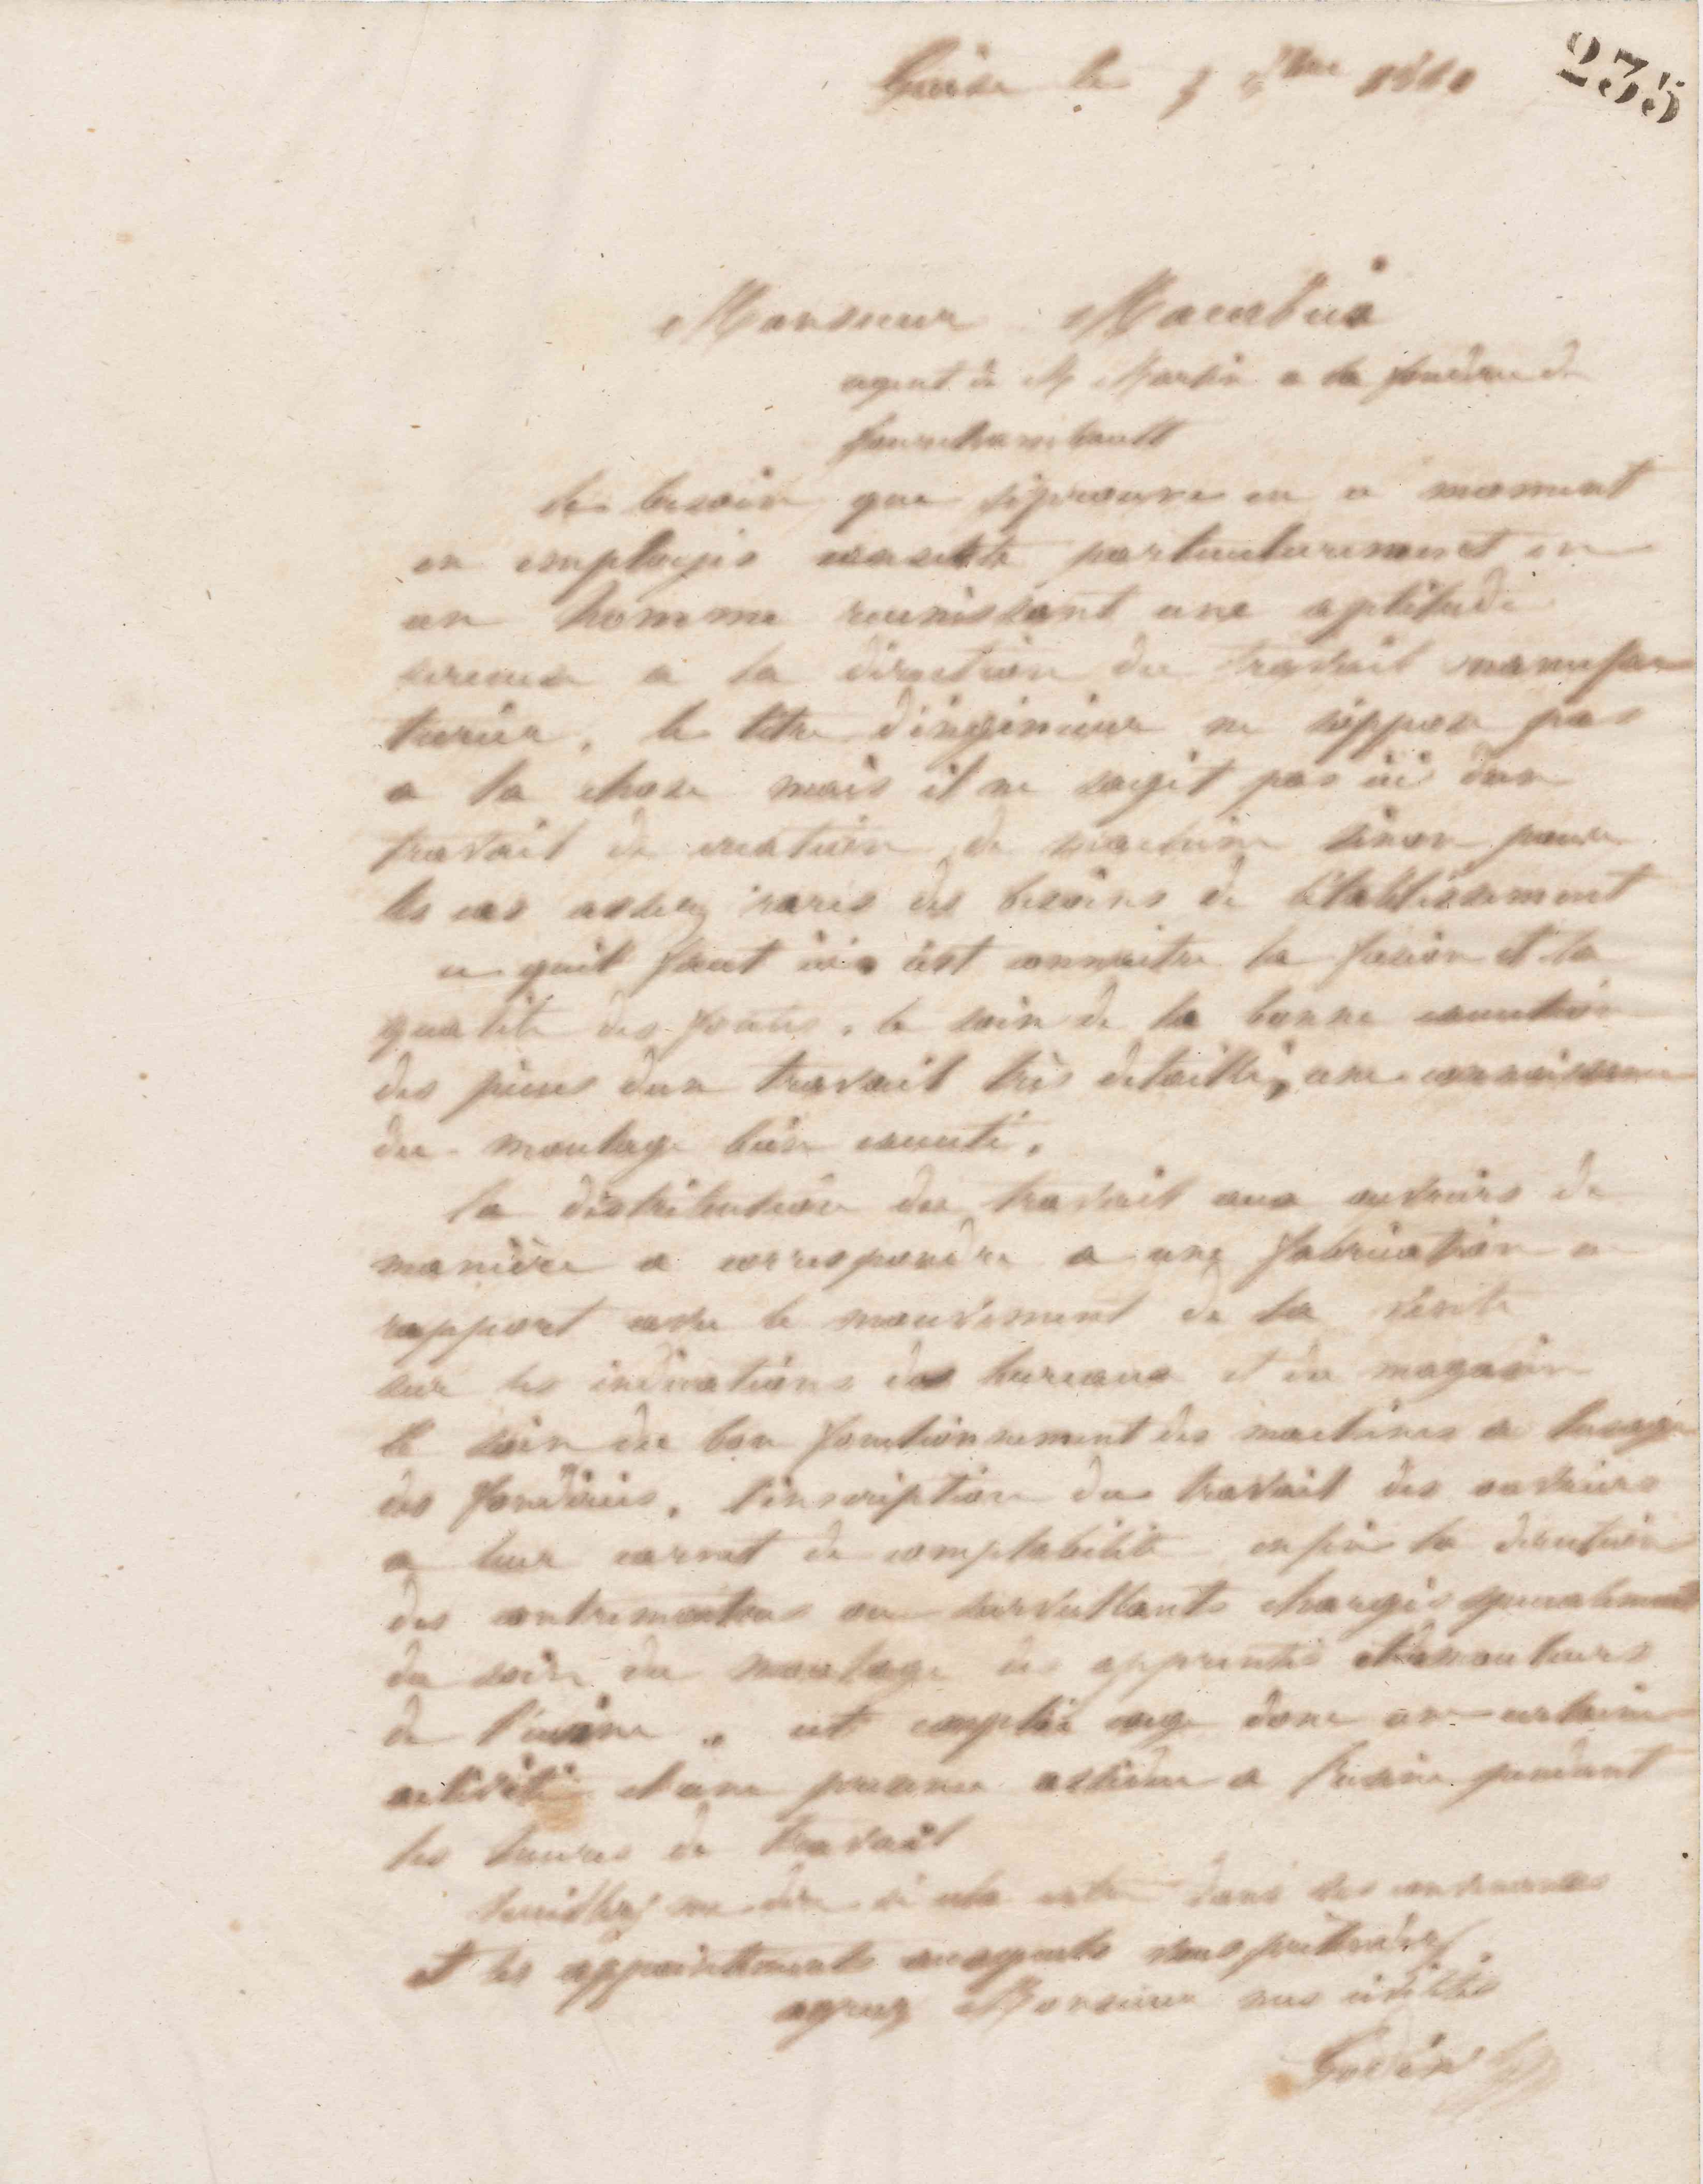 235
Guise le
Monsieur
agent à M Martin a la fonderie de
fourchambault
le besoin que j'éprouve en ce moment
en employés consiste particulierement en
un homme reunissant une aptitude
serieuse a la direction du travail manufac
turier, le titre d'ingénieur ne s'oppose pas
a la chose mais il ne sagit pas ici dun
travail de creation de machine sinon pour
les cas assez rares des besoins de l'établissement
ce quil faut ici cest connaitre la fusion et la
qualité des fontes, le soin de la bonne execution
des pieces dun travail très detaillé, une connaissance
du moulage bien executé.
la distribution du travail aux ouvriers de
manière a correspondre a une fabrication en
rapport avec le mouvement de la vente
sur les indications des bureaux et du magasin
le soin du bon fonctionnement des machines a lusage
des fonderies, l'inscription du travail des ouvriers
a leur carnet de comptabilité enfin la direction
des contremaitres ou surveillants chargés specialement
du soin du moulage des apprentis et mouleurs
de l'usine, cet emploi exige donc une certaine
activité et une presence assidue a l'usine pendant
les heures de travail
veuillez me dire si cela entre dans vos convenances
et les appointements auxquels vous prétendez.
agreez Monsieur mes civilités
Godin